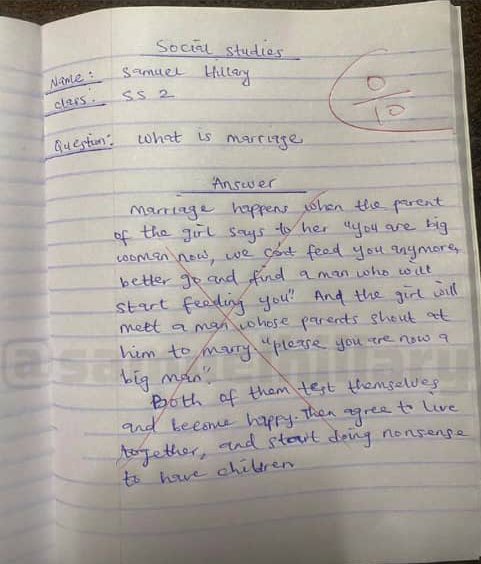 Social studies
Name: Samuel Hillary
class: SS 2
0
10
Question: what is marriage
Answer
Marriage happens when the parent
of the girl says to her "you are big
woman now, we can't feed you anymore,
better go and find a man who will
start feeding you" And the girl will
meet a man whose parents shout at
him to marry "please you are now a
big man".
Both of them test themselves
and become happy. Then agree to live
together, and start doing nonsense
to have children